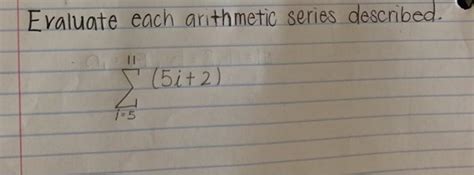 Evaluate each arithmetic series described.
11
∑ (5i+2)
i=5